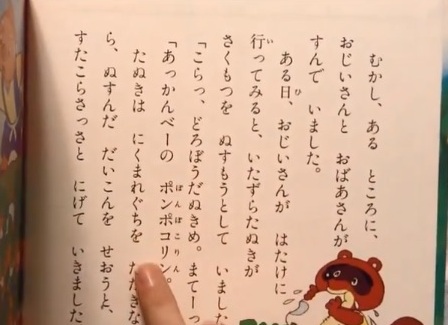 むかし、ある ところに、
おじいさんと おばあさんが
すんで いました。
ある日、おじいさんが はたけに
行ってみると、いたずらたぬきが
さくもつを ぬすもうとして いました
「こらっ、どろぼうだぬきめ。まてーっ
「あっかんべーの ポンポコリン。
たぬきは にくまれぐちを たたきな
ら、ぬすんだ だいこんを せおうと、
すたこらさっさと にげて いきました